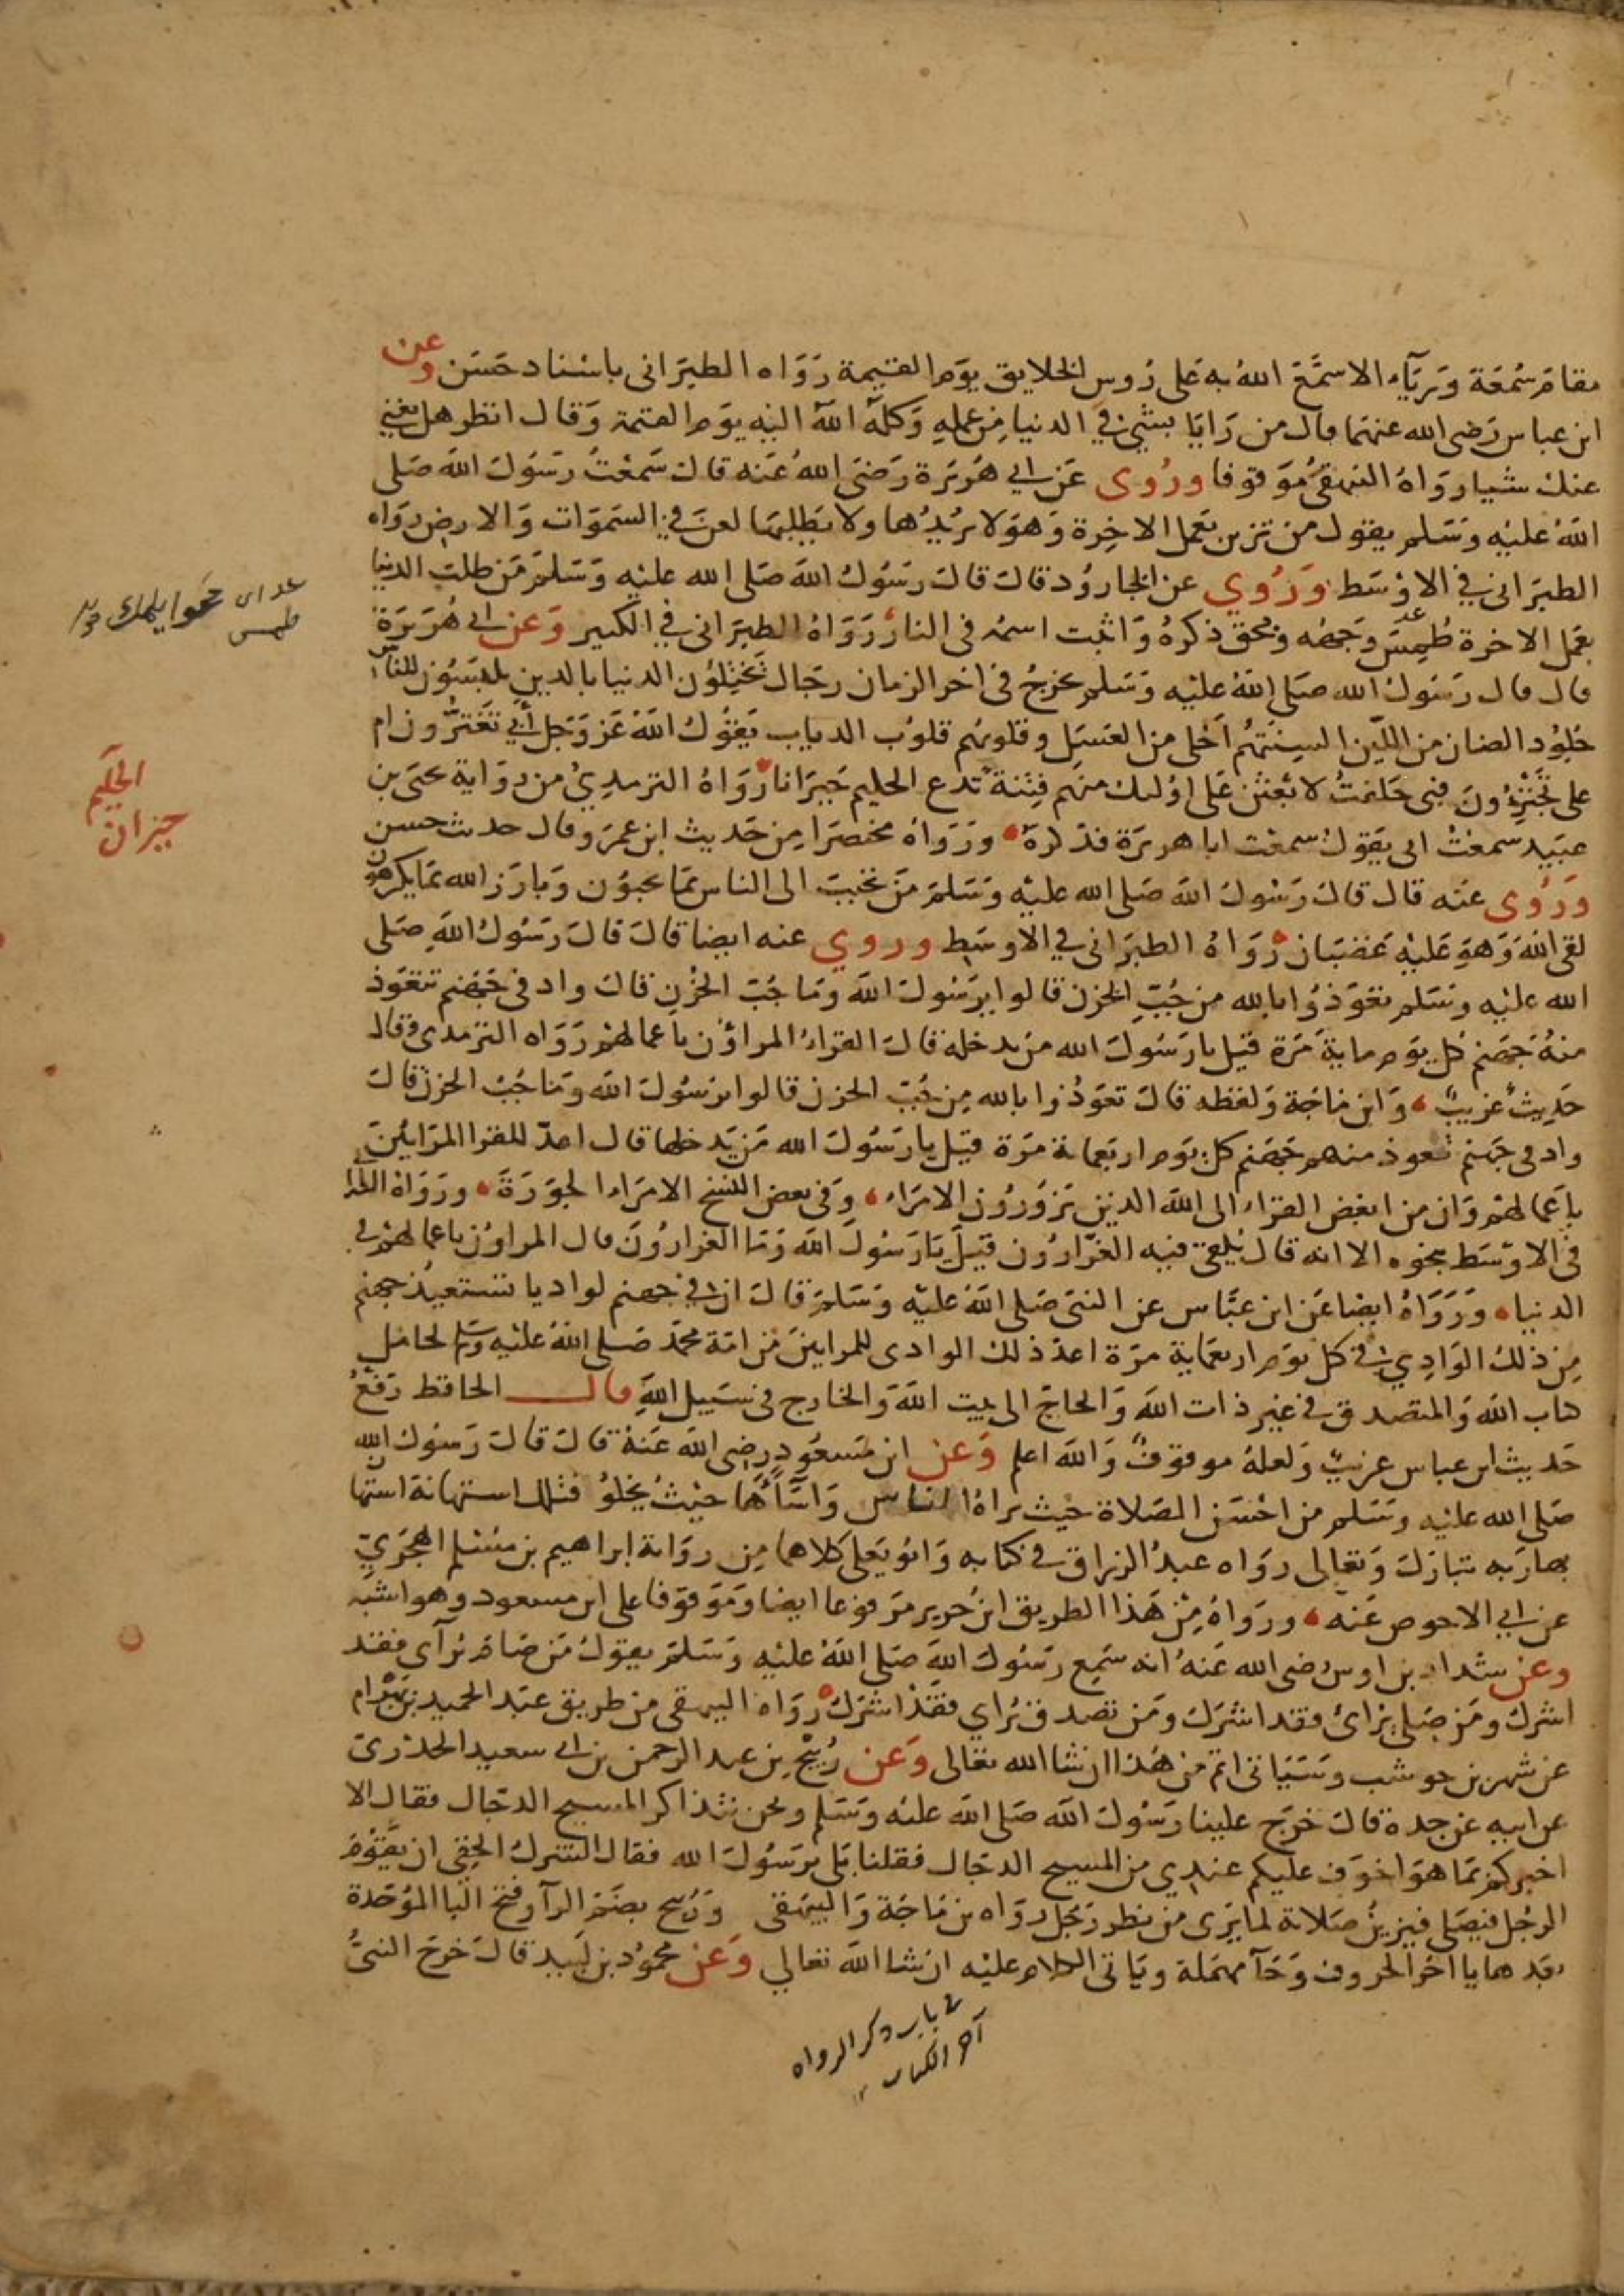 مقام سُمْعَة وَرِيَآء الا سمَّعَ اللهُ به عَلى رُوس الخلايق يوَم القيمة رَوَاه الطبَرانى باسْناد حَسَن وعن
ابن عباس رَضى الله عنهَما قال من رَايَا بشئ في الدنيا مِن عملِهِ وَكلَهُ اللهُ اليْهِ يوَم القيمة وَقال انظر هل يغنى
عنك شيا رواهُ البيهقى مُوَقوفا ورُوى عَن ابي هُرَيرَة رَضىَ اللهُ عَنه قالَ سَمعْتُ رَسُولَ اللهَ صَلى
اللهُ عليْهِ وسَلم يقول من تزين بعَمل الاخِرة وَهوَ لا يُرِيدُها ولا يطلبهَا لعنَ في السَموَات وَالارض روَاه
الطبَرانى في الاوْسَط وَرُوِي عن الجارُود قالَ قالَ رَسُولُ اللهَ صَلى الله عليْه وَسَلمَ مَن طلبَ الدنيا
بعَمل الاخرة طُمِسَ وَجهُه ومحق ذكرهُ وَاثبت اسمُه فى النار رَوَاهُ الطبَرانى في الكبير وَعن ابى هُرَيَرَة
قال قال رَسُولُ الله صَلى اللهُ عليْه وَسَلم يخرجُ فى اخر الزمان رجَال يَخْتِلوُن الدنيا بالدين يلبَسُون للناس
جُلوُد الضان من اللّين السِنَتهُم اَحْلى من العَسَل وقلوبُهم قلوُب الدياب يَقوُلُ اللهُ عَز وَجَل أبي تَغْترُّون ام
على تَجْتَرِءُونَ فبى حَلفتُ لابْعَثن عَلى اوُلئك منهم فِتنة تدع الحليم حَيرَانا رَوَاهُ الترمدِىُ من روَاية يحىَ بن
عبَيد سمعْتُ ابى يقوَلُ سمعْت ابا هريرَة فذكرهُ ورَوَاهُ مختصَرا مِن حَديث ابن عمرَ وقال حديث حسن
وَرُوى عنَه قال قالَ رَسُولَ اللهَ صَلى الله عليْه وَسَلمَ مَن تحَببَ الى الناس بمَا يحبوُن وَبارَز الله بمَا يكرهوُن
لقى اللهَ وَهوَ عَليْهِ غضبَان رَوَاهُ الطبَرانى في الاوسَط وروي عنه ايضا قالَ قالَ رَسُولُ اللهَ صَلى
الله عليْه وسَلم تعَوَذُوا بالله من جُبّ الحزن قالوا يرَسُولَ اللهَ وَمَا جُبّ الحُزْن قالَ واد فى جَهَنم تتعَوَذ
منهُ جَهنم كل يوَم مايةَ مَرَة قيل يا رَسُولَ الله مَن يدخله قالَ القراءُ المراؤُن باعمالهمْ رَوَاه الترمدى وقال
حَدِيثٌ غريبٌ وَابن مَاجَة وَلفظه قالَ تعَوَذُوا بالله مِن جُبّ الحزن قالوا يرَسُولَ اللهَ وَمَا جُبُ الحزن قالَ
واد فى جَهنم تعوذ منه جَهَنم كل يوَم اربَعماية مَرَة قيل يا رَسُولَ الله مَن يَدخلها قال اعدّ للقرا المرَايُينَ
باَعمالهمْ وَان من ابغض القرَاء الى اللهَ الدين يَزوُرُون الامَرَاء وَفى بعض النسَخ الامَرَاء الجوَرَةَ ورَوَاهُ
فى الاوسَط بنحوه الا انه قال يُلقى فيه الغرّارُون قيلَ يَا رَسُولَ اللهَ وَمَا الغرارُونَ قال المراوُن باعمالهمْ في
الدنيا وَرَوَاهُ ايضا عَن ابن عبَّاس عن النبىَ صَلى اللهَ عليْه وَسَلمَ قالَ ان في جهنم لواديا تستعيذُ جهنم
مِن ذلكَ الوَادِي في كل يوَم اربعمَاية مرَة اعد ذلك الوادى للمراينَ مَن امَة محمَّد صَلى اللهُ عليْهِ وسَلم لحامل
كتاب اللهَ وَالمتصدق في غير ذات اللهَ وَالحاجّ الى بيت اللهَ وَالخارج فى سَبيل اللهِ قالـــ الحافظ رَفعُ
حَديث ابن عباس غريبٌ وَلعلهُ موقوفٌ وَاللهَ اعلم وَعن ابن مَسعُودٍ رضى اللهَ عَنهُ قالَ قالَ رَسُولُ الله
صَلى الله عليْه وسَلم من احْسَن الصَلاة حَيث يراهُ الناس وَاسَاَهُا حَيْثُ يخلوُ فتلك استهانة استها
بها رَبه تبارَكَ وَتعَالى روَاه عبدُ الرزاق في كتابه وَابُو يَعلى كلاهما مِن روَاية ابراهيم بن مسْلم الهجَرىّ
عن ابي الاحوص عَنه ورَوَاهُ مِنْ هَذا الطريق ابنُ جرير مَرفوعا ايضا وَمَوقوفا على ابن مسعود وهو اشبه
وعن شداد بن اوس رضى الله عَنهُ انه سَمِع رَسُولَ اللهَ صَلى اللهُ عليْه وَسَلمَ يقوَلُ مَن صَامَ يُرآى فقد
اشركَ ومَن صَلى يرَائ فقد اشرَك ومَن تصَدق يُراي فقدْ اشرَك رَوَاه البيهقى من طريق عبَد الحميد بن بَهْرام
عن شهر بن حوشب وسَيَاتى اتم من هَذا ان شا الله تعالى وَعن رُبَيْحِ بِن عبد الرحمن بن ابى سعيد الخدْرىّ
عن ابيه عن جده قالَ خرَج علينا رَسُولَ اللهَ صَلى اللهَ عليْه وَسَلم ونحن نتذاكر المسيح الدجّال فقال الا
اخبركم بمَا هوَ اخوَف عليكم عندِي من المسيح الدجّال فقلنا بَلى يرَسُولَ الله فقال الشرك الخفى ان يقوُمَ
الرجُل فيصَلى فيزينُ صَلاتة لما يَرى من نظر رَجُل روَاه بن مَاجَة وَالبيهَقى وَرُبَيح بضَم الرآ وفتح البا الموُحَدة
بعَدها يا اخرَ الحروف وَحَآ مهمَلة ويَاتى الكلام عليْه ان شا اللهَ تعالي وَعَن محموُد بن لَبيد قالَ خرجَ النبىُ
في باب ذكر الرواه
آخر الكتاب
طمس
الحَليم
حيران